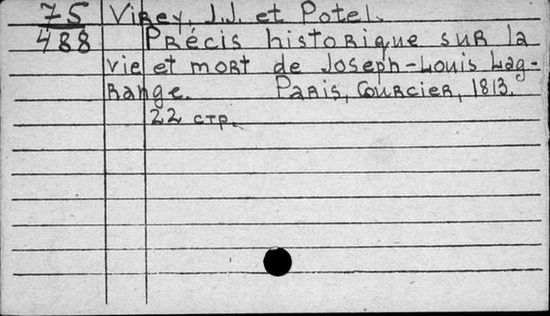 75 Virey, J.J. et Potel.
488 Précis historique sur la
vie et mort de Joseph-Louis Lag-
range. Paris, Courcier, 1813.
22 стр.